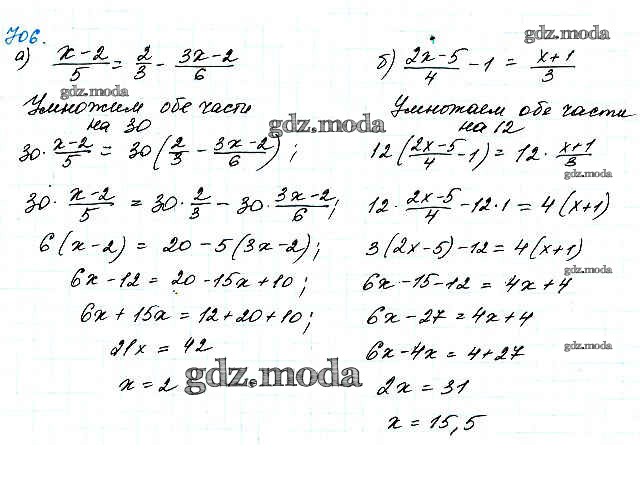 706.
а) (x-2)/5 = 2/3 - (3x-2)/6
Умножим обе части
на 30
30·(x-2)/5 = 30(2/3 - (3x-2)/6);
30·(x-2)/5 = 30·2/3 - 30·(3x-2)/6;
6(x-2) = 20-5(3x-2);
6x-12 = 20-15x+10;
6x+15x = 12+20+10;
21x = 42
x = 2
б) (2x-5)/4 - 1 = (x+1)/3
Умножаем обе части
на 12
12((2x-5)/4 - 1) = 12·(x+1)/3
12·(2x-5)/4 - 12·1 = 4(x+1)
3(2x-5)-12 = 4(x+1)
6x-15-12 = 4x+4
6x-27 = 4x+4
6x-4x = 4+27
2x = 31
x = 15,5
gdz.moda
gdz.moda
gdz.moda
gdz.moda
gdz.moda
gdz.moda
gdz.moda
gdz.moda